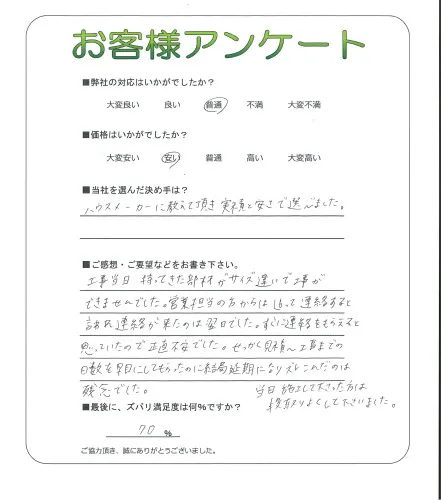 お客様アンケート
■弊社の対応はいかがでしたか?
大変良い 良い 普通 不満 大変不満
■価格はいかがでしたか?
大変安い 安い 普通 高い 大変高い
■当社を選んだ決め手は?
ハウスメーカーに教えて頂き実績と安さで選びました。
■ご感想・ご要望などをお書き下さい。
工事当日 持ってきた部材がサイズ違いで工事が
できませんでした。営業担当の方からは 追って連絡すると
言われ連絡が来たのは翌日でした。すぐに連絡をもらえると
思っていたので正直不安でした。せっかく見積〜工事までの
日数を早目にしてもらったのに結局延期になりズレこんだのは
残念でした。
当日施工して下さった方は
段取りよくして下さいました。
■最後に、ズバリ満足度は何%ですか?
70 %
ご協力頂き、誠にありがとうございました。